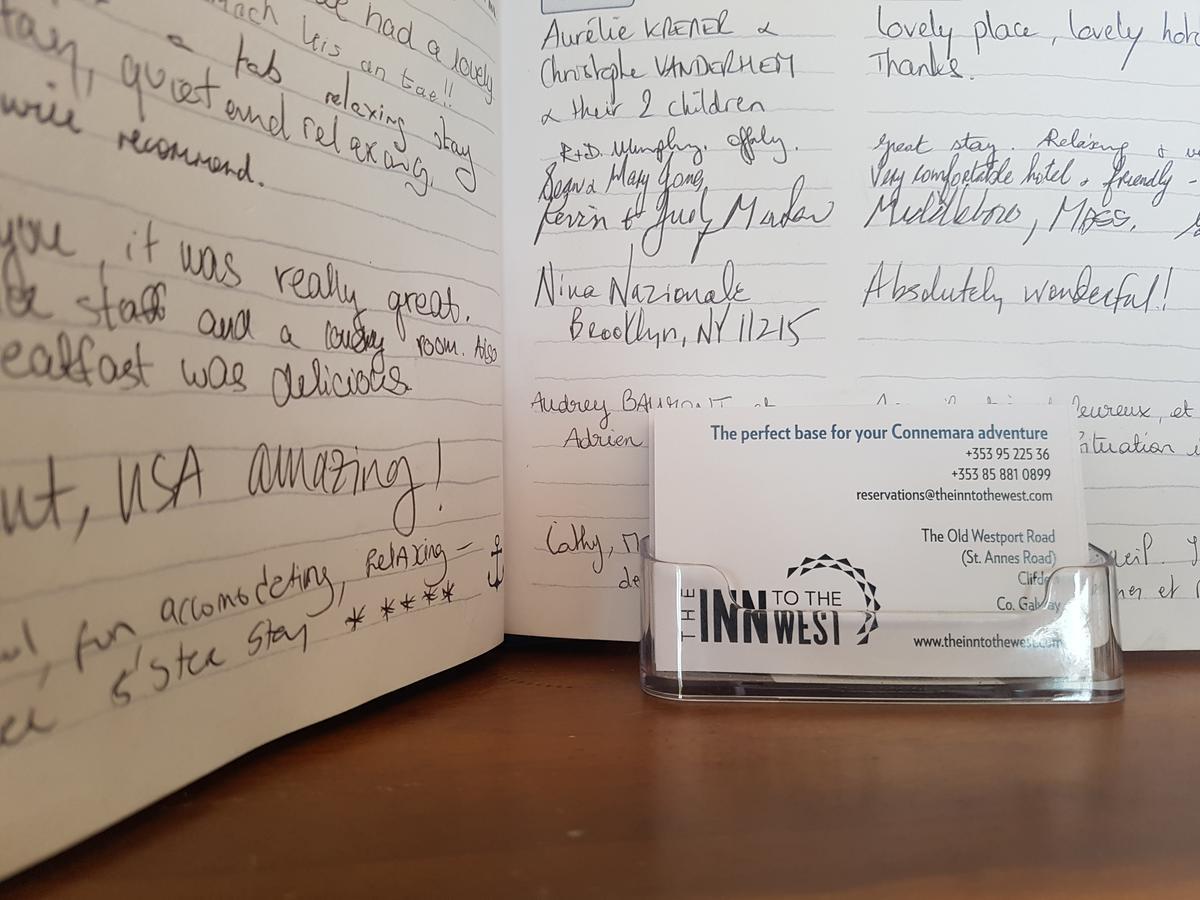 had a lovely
leis an tae!!
tab relaxing stay
quiet and relaxing,
recommend.
you, it was really great.
staff and a lovely room. Also
was delicious
USA amazing!
fun accomodating, RELAXING –
sister stay *****
Aurélie KREMER &
Christophe VANDERHEM
& their 2 children
R+D. Murphy. Offaly.
Sean & Mary Jones
Kevin & Judy
Nina Nazionale
Brooklyn, NY 11215
Audrey BAUMONT et
Adrien
Cathy,
de
lovely place, lovely
Thanks.
Great stay. Relaxing &
Very comfortable hotel & friendly -
Middleboro, MASS.
Absolutely wonderful!
heureux, et
situation
et
The perfect base for your Connemara adventure
+353 95 225 36
+353 85 881 0899
reservations@theinntothewest.com
The Old Westport Road
(St. Annes Road)
Clifden
Co. Galway
www.theinntothewest.com
THE INN TO THE WEST